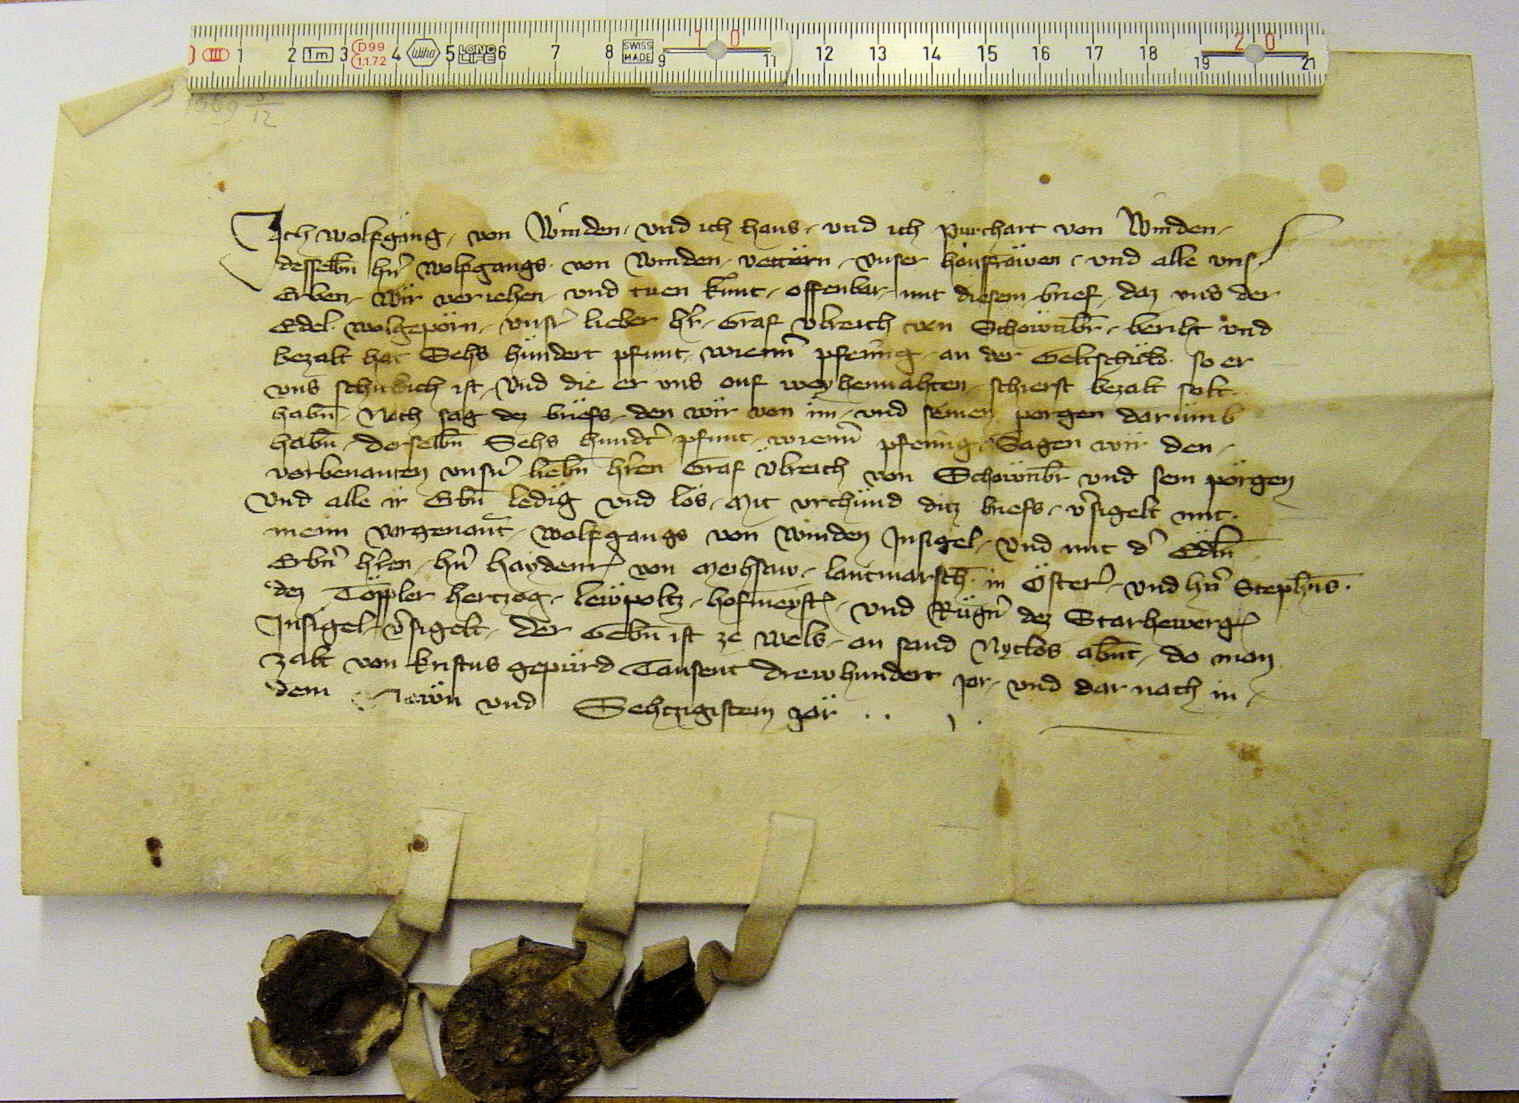 1 2 1m 3 D99 1.1.72 4 wiha 5 LONG LIFE 6 7 8 SWISS MADE 9 10 11 12 13 14 15 16 17 18 19 20 21
1369 5/12
Ich wolfgang von Winden und ich hans und ich purchart von Winden
desselbn̄ hn̄ wolfgangs von winden vettörn unser hausfrawen und alle uns
Erben wir veriehen und tuen kunt offenbar mit diesem brief daz uns der
Edel wolgeporn unsr lieber hr̄ Graf Ulreich von Schownbr̄ bericht und
bezalt hat Sehs hundert pfunt wienn̄ pfening an der Geltschuld so er
uns schuldich ist und die er uns auf weyhennahten schierst bezalt solt
habn̄ Nach sag dez briefs den wir von im und seinen porgen darumb
habn̄ derselbn̄ Sehs hundt̄ pfunt wienn̄ pfening Sagen wir den
vorbenanten unsn̄ liebn̄ hr̄en Graf Ulreich von Schownbr̄ und sein pörgen
und alle ir Erbn̄ ledig und los Mit urchund ditz briefs v̄sigelt mit
meim vorgenant̄ wolfgangs von winden Insigel und mit d̄ Edln̄
Erbn̄ hr̄en hn̄ haydenr̄ von meihsaw lantmarsch̄ in Öster̄ und hn̄ Stephns
dez Töppler hertzog lewpoltz hofmeyst̄ und Rügn̄ dez Starhewerḡ
Insigel v̄sigelt der Gebn̄ ist ze wels an sand Nyclos abn̄t do man
zalt von kristus gepurd Tausent drewhundert jar und dar nach in
dem Newn und Sehtzigistem jar